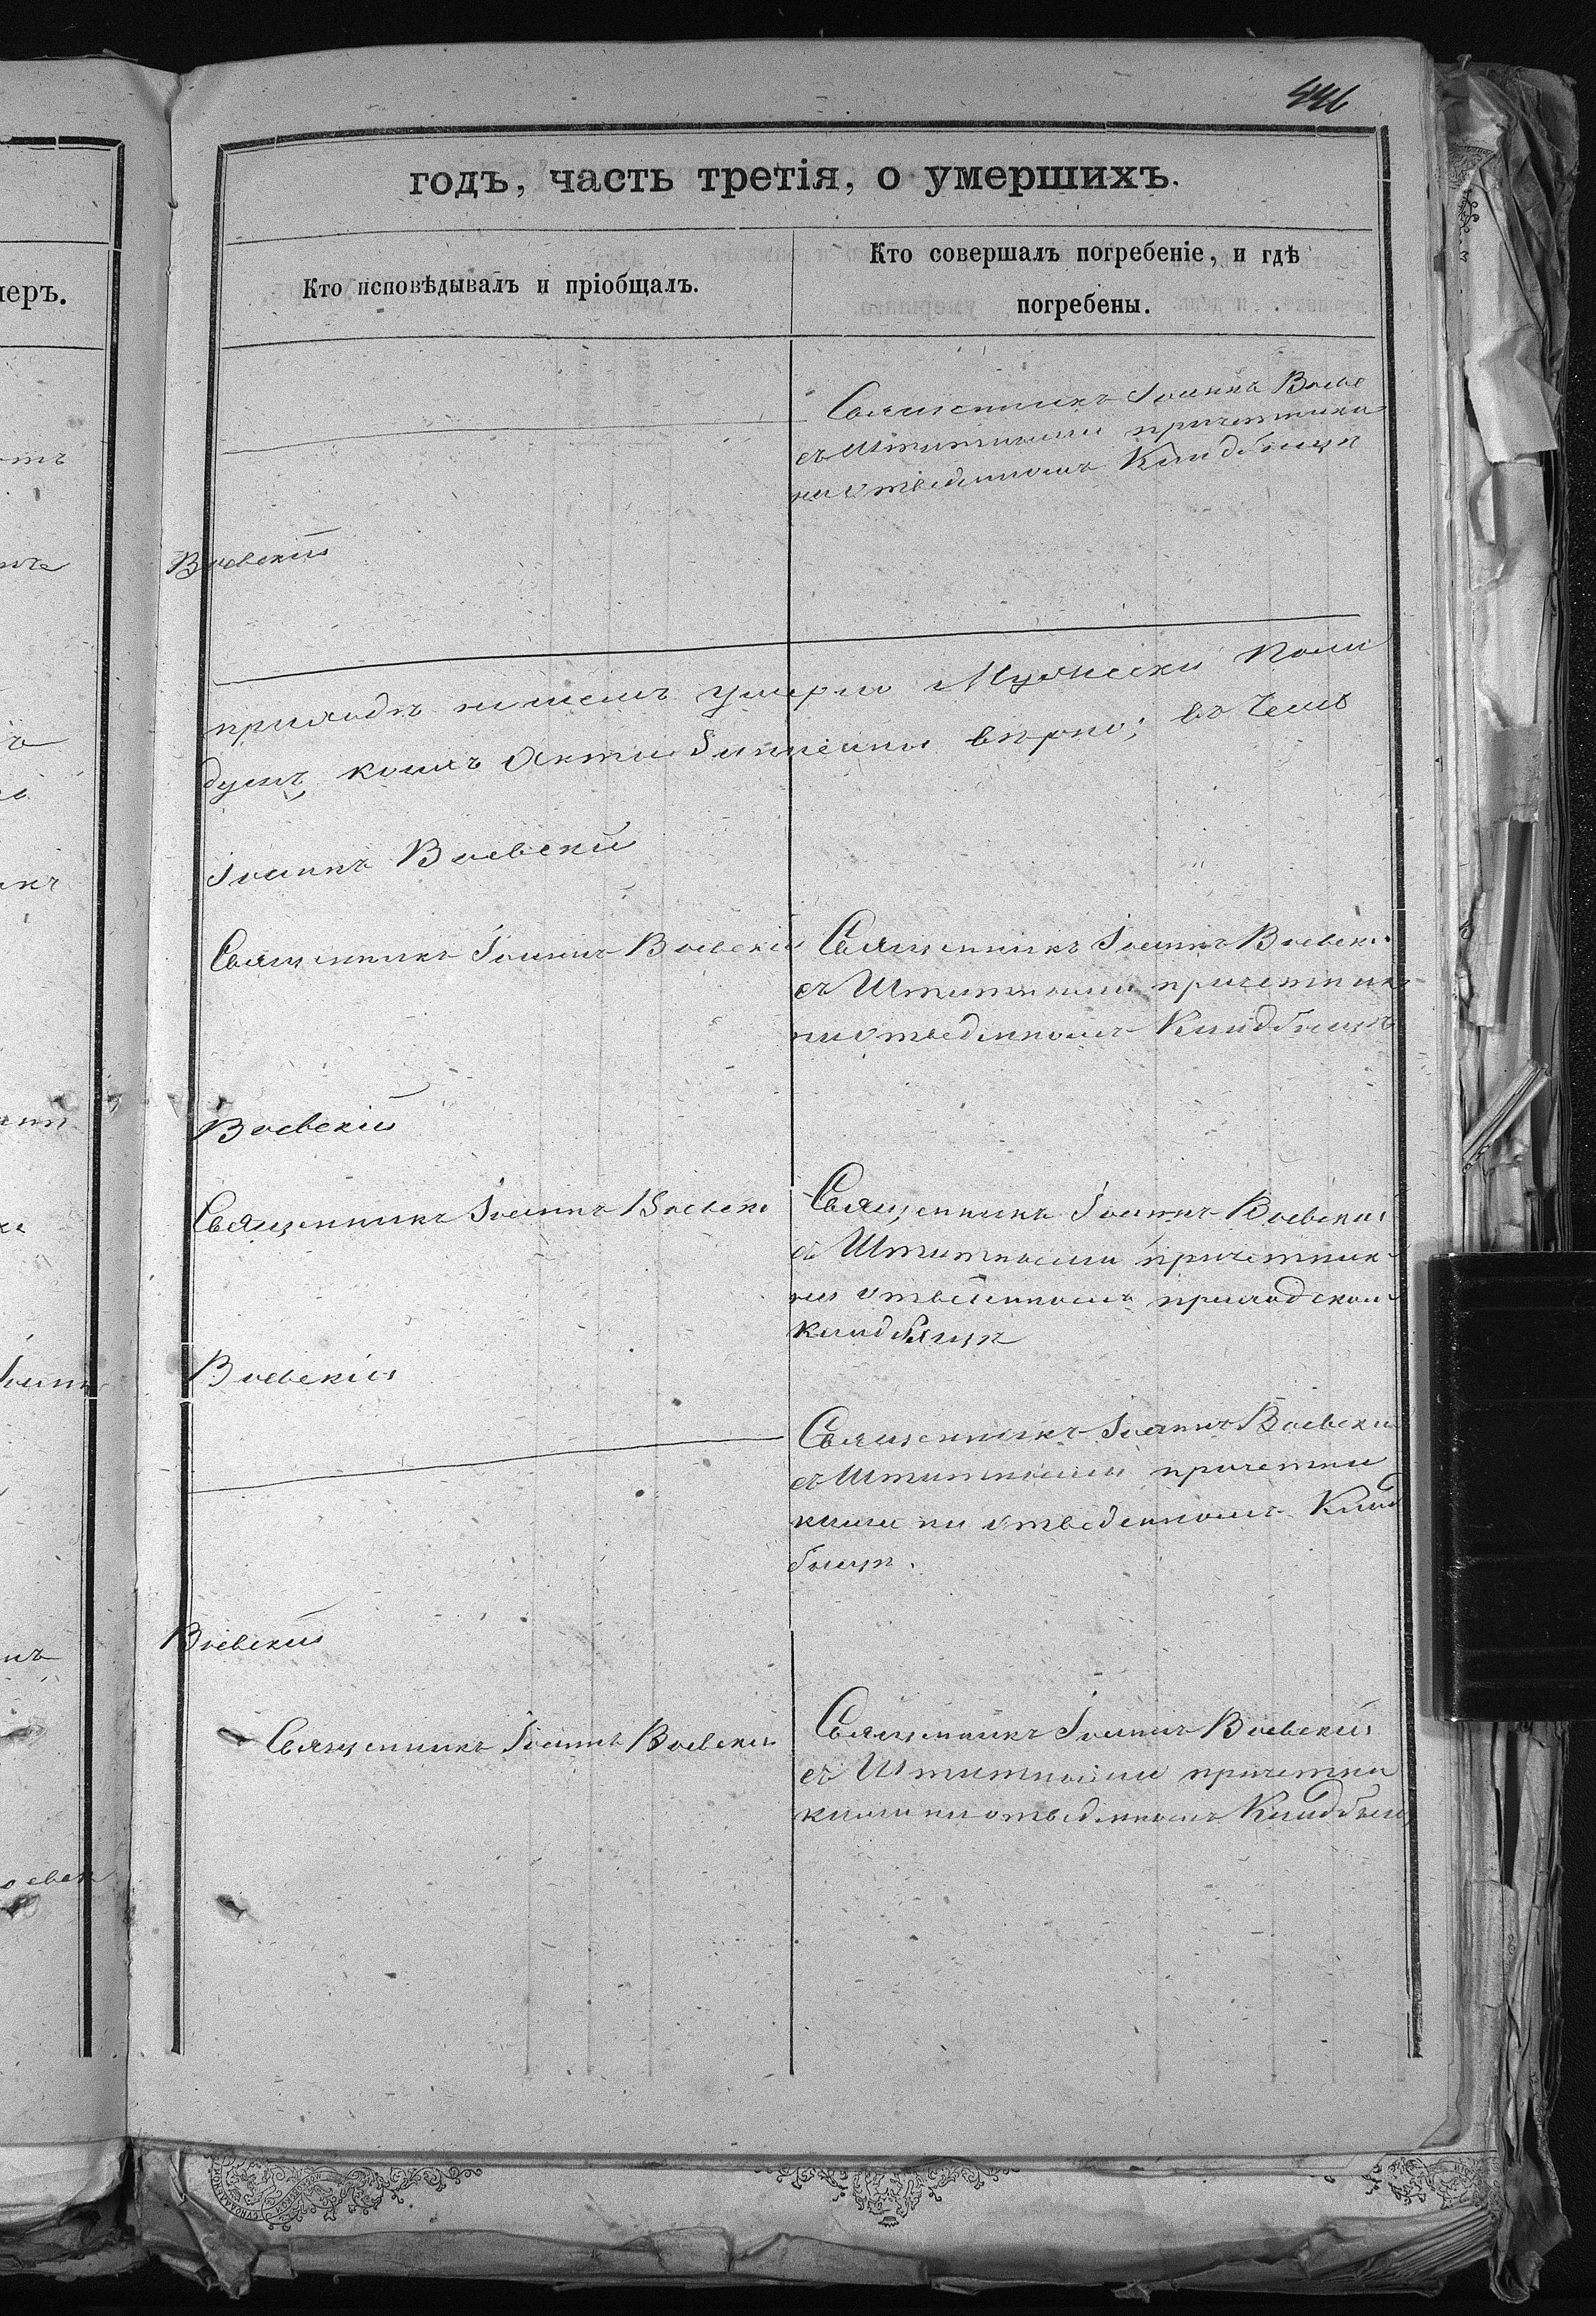 446
годъ, часть третія, о умершихъ.
Кто исповѣдывалъ и пріобщалъ.
Кто совершалъ погребеніе, и гдѣ
погребены.
меръ.
Священникъ Іоаннъ Воев
съ Штатными причетника
на отведенномъ Кладбищѣ
Воевскій
приходѣ нашемъ умерло Мужеска пола
душъ, комъ вѣрно; въ чемъ
Іоаннъ Воевскій
Священникъ Іоаннъ Воевскій
Священникъ Іоаннъ Воевскі
съ Штатными причетник
на отведенномъ Кладбищѣ
Воевскій
Священникъ Іоаннъ Воевскі
Священникъ Іоаннъ Воевскій
съ Штатными причетник
на отведенномъ приходском
Кладбищѣ
Воевскій
Священникъ Іоаннъ Воевски
съ Штатными причетни
ками на отведенномъ Клад
бищѣ.
Воевскій
Священникъ Іоаннъ Воевскій
Священникъ Іоаннъ Воевскій
съ Штатными причетни
ками на отведенномъ Кладбищ